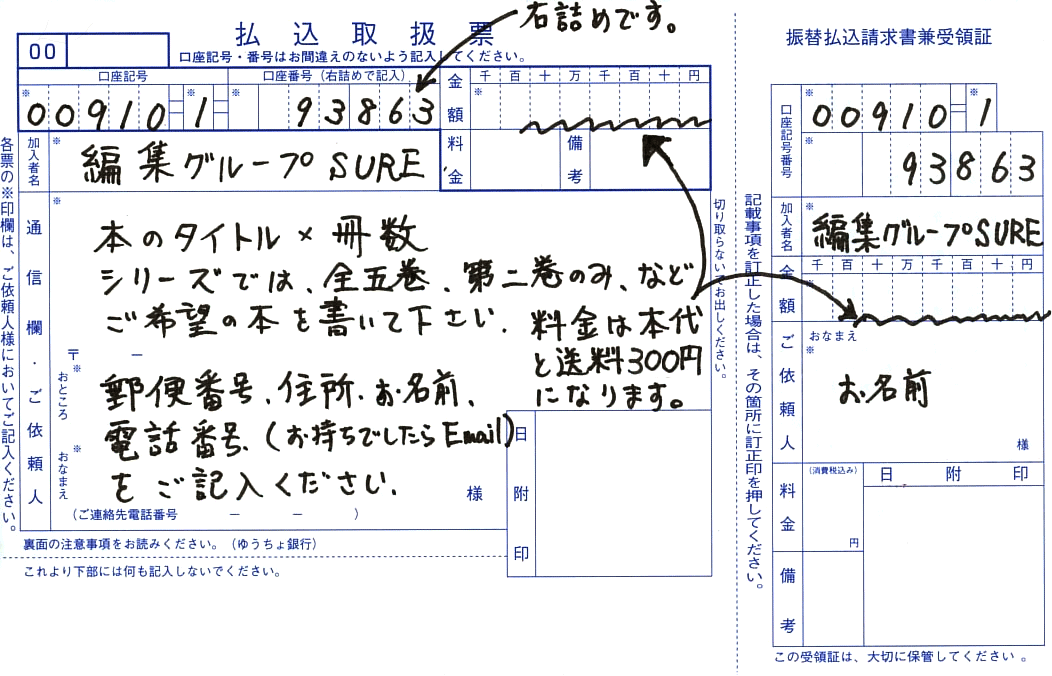 右詰めです。
00
払込取扱票
口座記号・番号はお間違えのないよう記入してください。
口座記号
口座番号（右詰めで記入）
※ 00910
※ 1
※ 93863
金額
千 百 十 万 千 百 十 円
※
加入者名
※
編集グループSURE
料金
備考
通信欄・ご依頼人
※
本のタイトル×冊数
シリーズでは、全五巻、第二巻のみ、など
ご希望の本を書いて下さい.
料金は本代
と送料300円
になります。
〒 －
おところ
※
郵便番号、住所、お名前、
電話番号、(お持ちでしたらEmail)
をご記入ください.
おなまえ
※
様
（ご連絡先電話番号 － － ）
日附印
裏面の注意事項をお読みください。（ゆうちょ銀行）
これより下部には何も記入しないでください。
各票の※印欄は、ご依頼人様においてご記入ください。
切り取らないでお出しください。
記載事項を訂正した場合は、その箇所に訂正印を押してください。
振替払込請求書兼受領証
口座記号番号
※ 00910
※ 1
93863
加入者名
※
編集グループSURE
金額
千 百 十 万 千 百 十 円
※
ご依頼人
おなまえ
※
お名前
様
料金
（消費税込み）
円
日 附 印
備考
この受領証は、大切に保管してください。